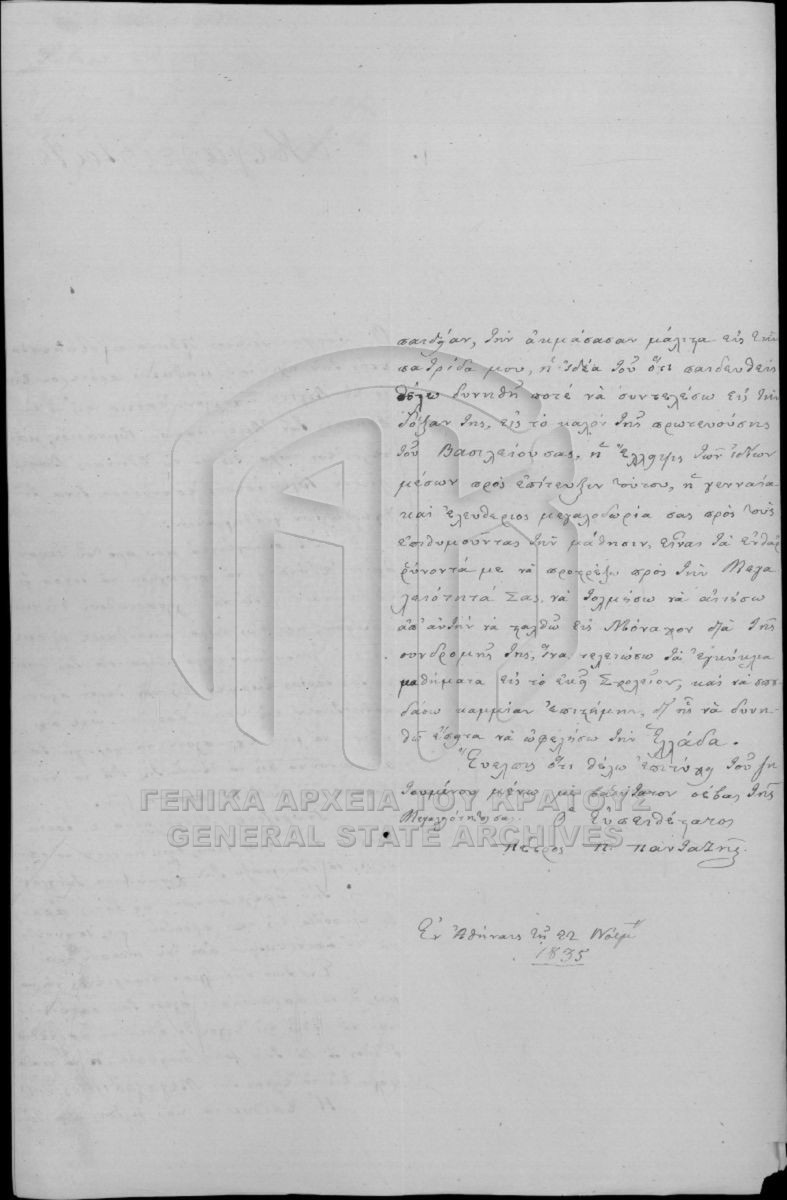 παιδείαν, τὴν ἀκμάσασαν μάλιστα εἰς τὴν
πατρίδα μου, ἡ ἰδέα τοῦ ὅτι παιδευθεὶς
θέλω δυνηθῆ ποτὲ νὰ συντελέσω εἰς τὴν
δόξαν της, εἰς τὸ καλὸν τῆς πρωτευούσης
τοῦ Βασιλείου σας, ἡ ἔλλειψις τῶν ἰδίων
μέσων πρὸς ἐπίτευξιν τούτου, ἡ γενναία
καὶ ἐλευθέριος μεγαλοδωρία σας πρὸς τοὺς
ἐπιθυμοῦντας τὴν μάθησιν, εἶναι τὰ ἐνθαρ
ρύνοντά με νὰ προστρέξω πρὸς τὴν Μεγα
λειότητά Σας, νὰ τολμήσω νὰ αἰτήσω
ἀπ' αὐτὴν νὰ σταλθῶ εἰς Μόναχον διὰ τῆς
συνδρομῆς της, ἵνα τελειώσω τὰ ἐγκύκλια
μαθήματα εἰς τὸ ἐκεῖ Σχολεῖον, καὶ νὰ σπου
δάσω καμμίαν ἐπιστήμην, δι' ἧς νὰ δυνη-
θῶ ἔπειτα νὰ ὠφελήσω τὴν Ἑλλάδα.
Εὔελπις ὅτι θέλω ἐπιτύχῃ τοῦ ζη
τουμένου μένω μὲ βαθύτατον σέβας τῆς
Μεγαλειότητός σας.
Ὁ Εὐπειθέστατος
Πέτρος Π. Πανταζῆς.
Ἐν Ἀθήναις τῇ 22 Νοεμ
1835
ΓΕΝΙΚΑ ΑΡΧΕΙΑ ΤΟΥ ΚΡΑΤΟΥΣ
GENERAL STATE ARCHIVES